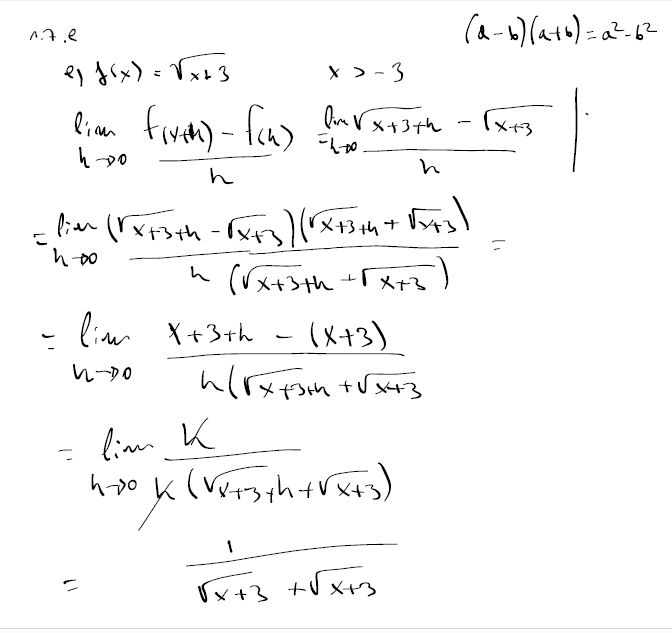 1.7.e (a-b)(a+b)=a²-b²
e) f(x) = √x+3 x > -3
lim h→0 f(x+h) - f(x) / h = lim h→0 √x+3+h - √x+3 / h
= lim h→0 (√x+3+h - √x+3)(√x+3+h + √x+3) / h (√x+3+h + √x+3) =
= lim h→0 x+3+h - (x+3) / h(√x+3+h + √x+3
= lim h→0 h / h (√x+3+h + √x+3)
= 1 / √x+3 + √x+3